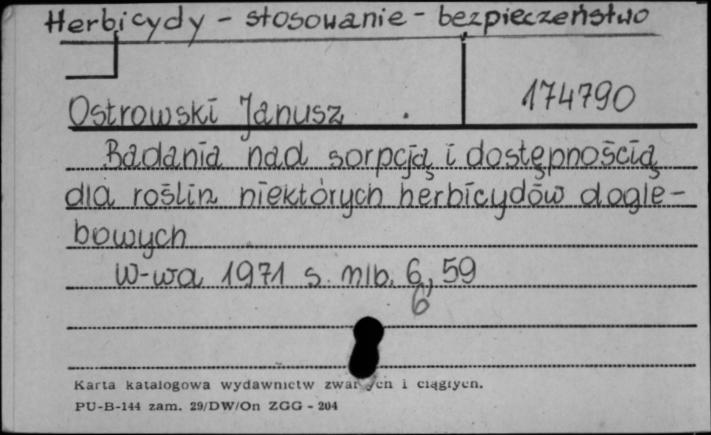 Herbicydy - stosowanie - bezpieczeństwo
Ostrowski Janusz
174790
Badania nad sorpcją i dostępnością
dla roślin niektórych herbicydów dogle-
bowych
W-wa 1971 s. nlb. 6, 59
6
Karta katalogowa wydawnictw zwartych i ciągłych.
PU-B-144 zam. 29/DW/On ZGG - 204